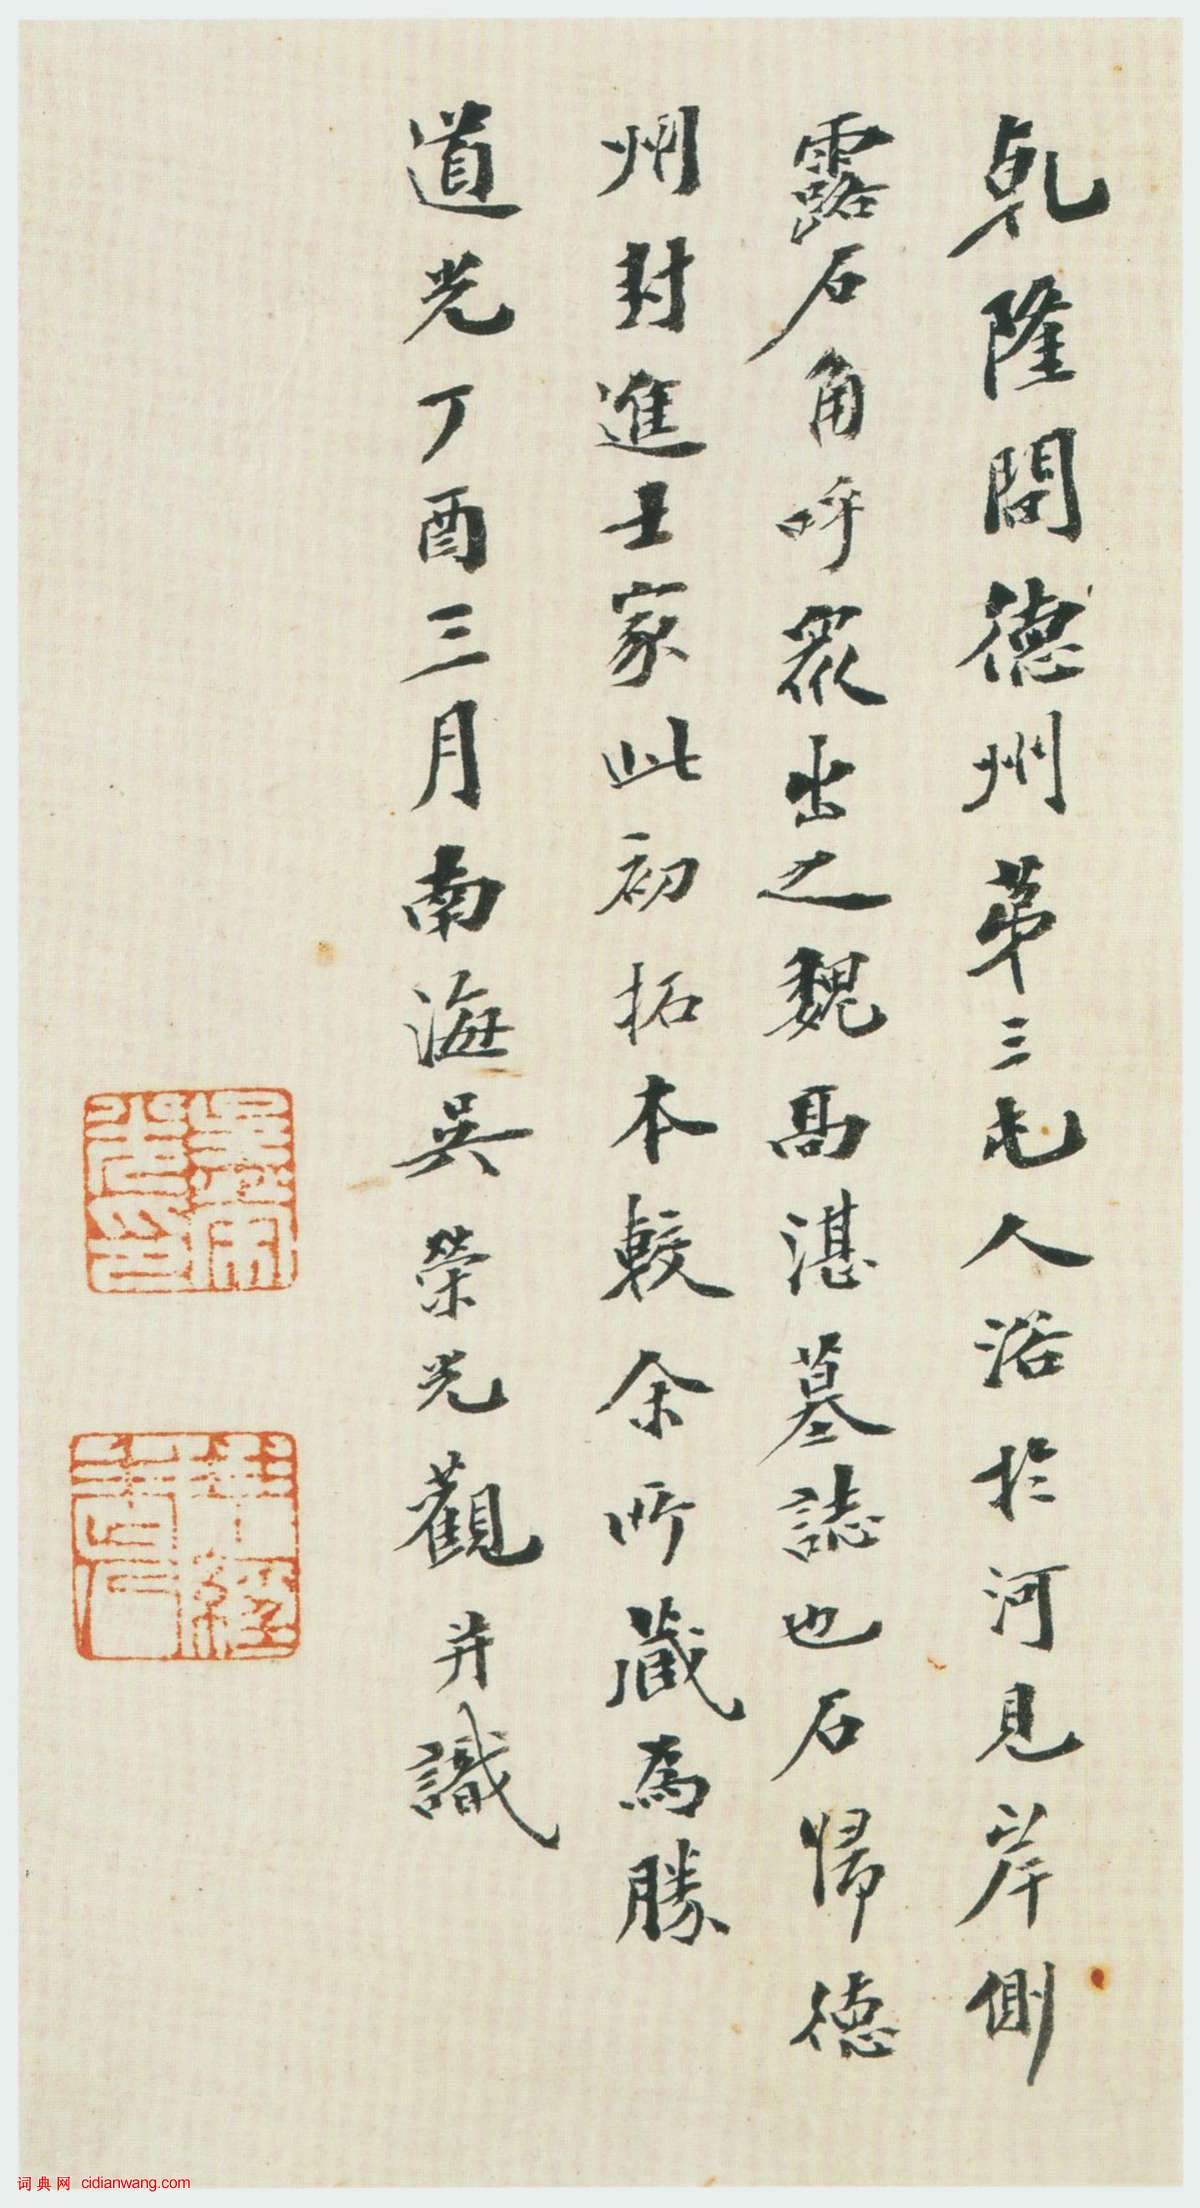 乾隆間德州第三屯人浴於河見岸側
露石角呼眾出之魏高湛墓誌也石歸德
州封進士家此初拓本較余所藏為勝
道光丁酉三月南海吳榮光觀并識
吳榮光印
词典网 cidianwang.com